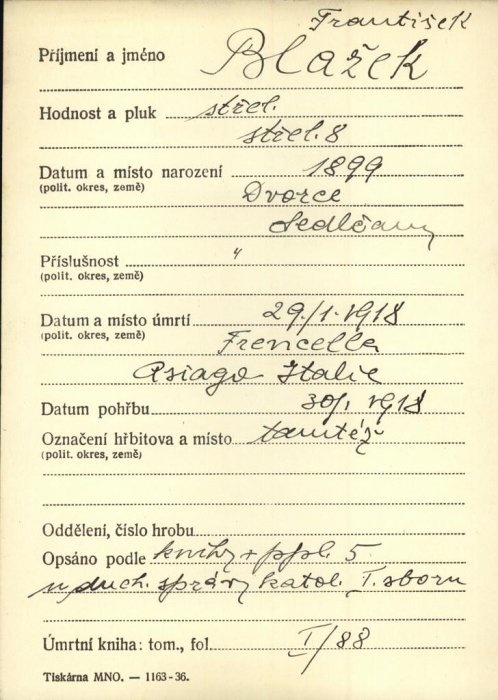 František
Příjmení a jméno Blažek
Hodnost a pluk střel.
střel. 8
Datum a místo narození 1899
(polit. okres, země) Dvorce
Sedlčany
Příslušnost "
(polit. okres, země)
Datum a místo úmrtí 29./1. 1918
(polit. okres, země) Frencella
Asiago Italie
Datum pohřbu 30/1. 1918
Označení hřbitova a místo tamtéž
(polit. okres, země)
Oddělení, číslo hrobu
Opsáno podle knihy + ppl. 5
u duch. správy katol. I. sboru
Úmrtní kniha: tom., fol. I/88
Tiskárna MNO. — 1163-36.